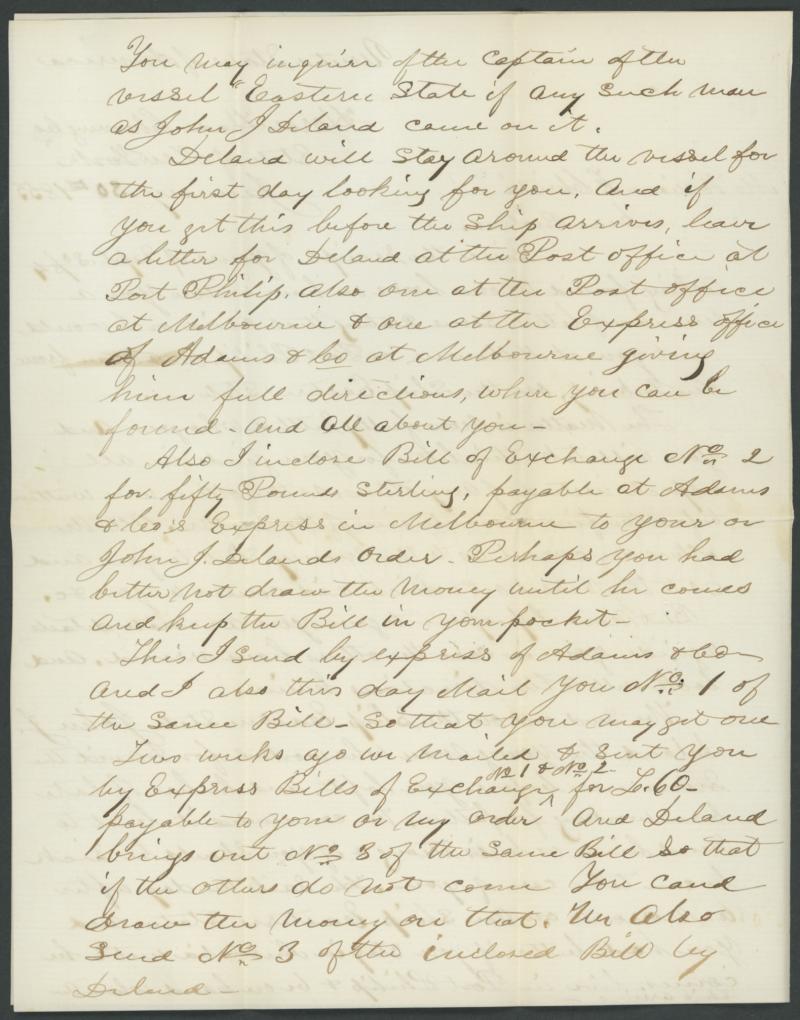 You may inquire of the Captain of the
vessel "Eastern State if any such man
as John J Deland came on it.
Deland will stay around the vessel for
the first day looking for you. And if
you get this before the ship arrives, leave
a letter for Deland at the Post office at
Port Philip. Also one at the Post office
at Melbourne & one at the Express office
of Adams & Co at Melbourne giving
him full directions, where you can be
found - And all about you -
Also I inclose Bill of Exchange No. 2
for fifty Pounds Sterling, payable at Adams
& Co's Express in Melbourne to your or
John J. Delands Order - Perhaps you had
better not draw the money until he comes
and keep the Bill in your pocket -
This I send by express of Adams & Co -
And I also this day Mail you No. 1 of
the Same Bill - So that you may get one
Two weeks ago we mailed & sent you
No 1 & No. 2
by Express Bills of Exchange ^ for £.60 -
payable to your or my order And Deland
brings out No. 3 of the Same Bill So that
if the others do not come You cand
draw the money on that. We Also
Send No. 3 of the inclosed Bill by
Deland -